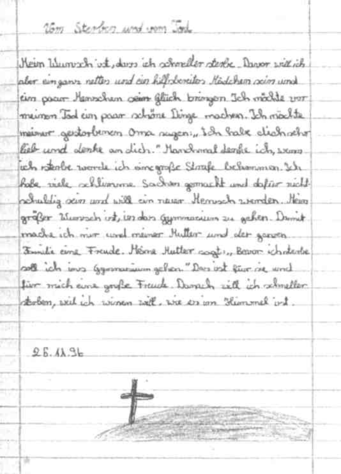 Vom Sterben und vom Tod
Mein Wunsch ist, dass ich schneller sterbe. Davor will ich
aber ein ganz nettes und ein hilfsbereites Mädchen sein und
ein paar Menschen sein Glück bringen. Ich möchte vor
meinen Tod ein paar schöne Dinge machen. Ich möchte
meiner gestorbenen Oma sagen, „Ich habe dich sehr
lieb und denke an dich." Manchmal denke ich, wenn
ich sterbe werde ich eine große Strafe bekommen. Ich
habe viele schlimme Sachen gemacht und dafür nicht
schuldig sein und will ein neuer Mensch werden. Mein
großer Wunsch ist, in das Gymnasium zu gehen. Damit
mache ich mir und meiner Mutter und der ganzen
Familie eine Freude. Meine Mutter sagt, „Bevor ich sterbe
soll ich ins Gymnasium gehen." Das ist für sie und
für mich eine große Freude. Danach will ich schneller
sterben, weil ich wissen will, wie es im Himmel ist.
26.11.96